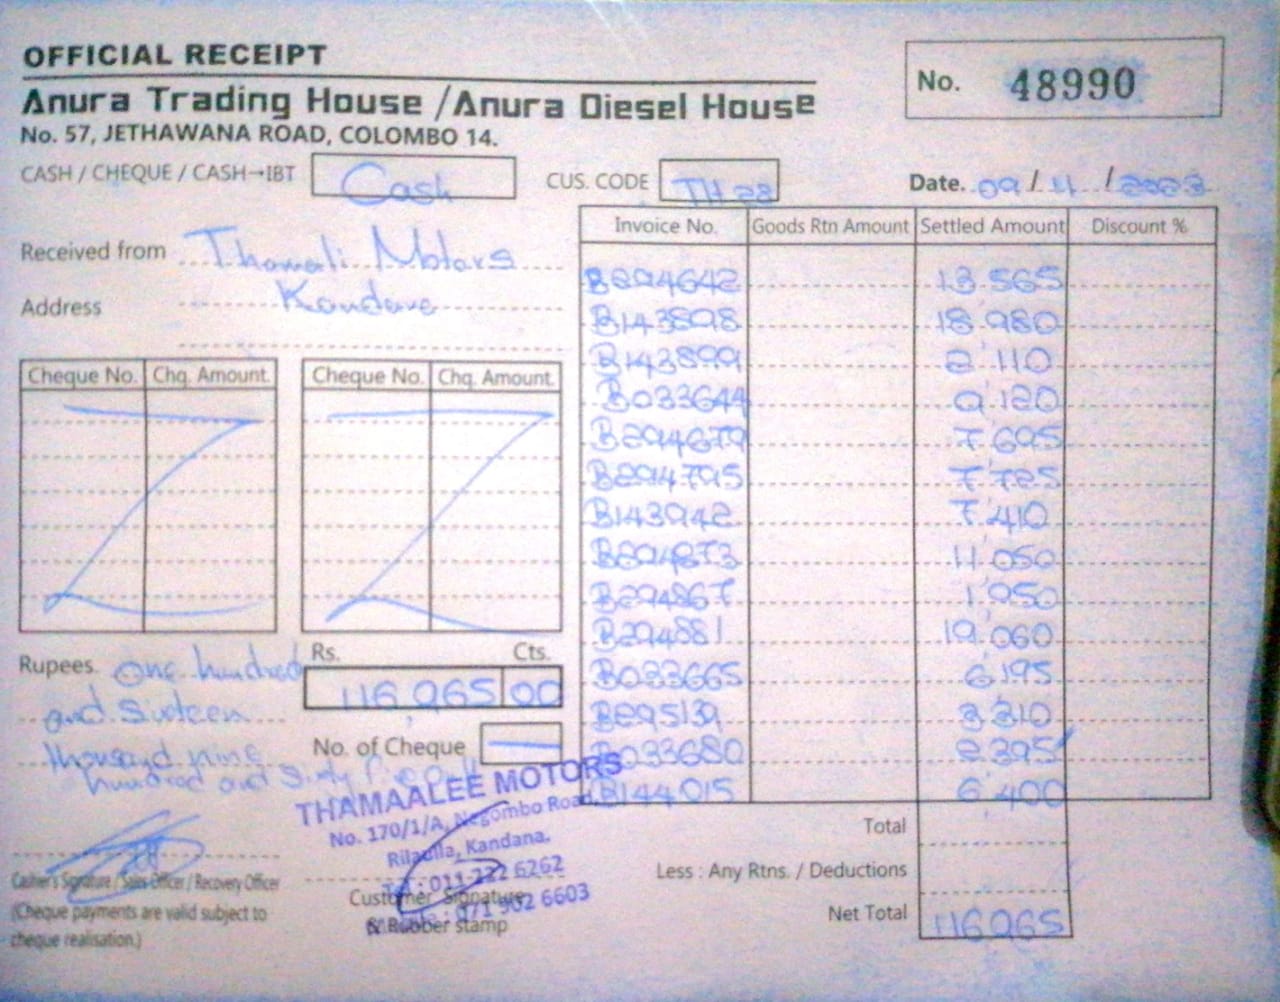 OFFICIAL RECEIPT
Anura Trading House / Anura Diesel House
No. 57, JETHAWANA ROAD, COLOMBO 14.
No. 48990
CASH / CHEQUE / CASH→IBT Cash
CUS. CODE TH 28
Date. 09 / 11 / 2023
Received from Thamali Motors
Address Kandana
Cheque No. Chq. Amount Cheque No. Chq. Amount
Invoice No. Goods Rtn Amount Settled Amount Discount %
B294642 13'565
B143898 18'980
B143899 2'110
B033644 9'120
B294679 7'695
B294795 7'725
B143942 7'410
B294873 11'050
B294867 1'950
B294881 19'060
B033665 6'195
B295139 3'310
B033680 2'395
B144015 6'400
Total
Less : Any Rtns. / Deductions
Net Total 116965
Rs. Cts.
116,965 00
Rupees. One hundred
and sixteen
thousand nine
hundred and sixty five
No. of Cheque
THAMAALEE MOTORS
No. 170/1/A, Negombo Road,
Rilaulla, Kandana.
Tel : 011-222 6262
071 902 6603
Cashier's Signature / Sales Officer / Recovery Officer
(Cheque payments are valid subject to
cheque realisation.)
Customer Signature
& Rubber stamp